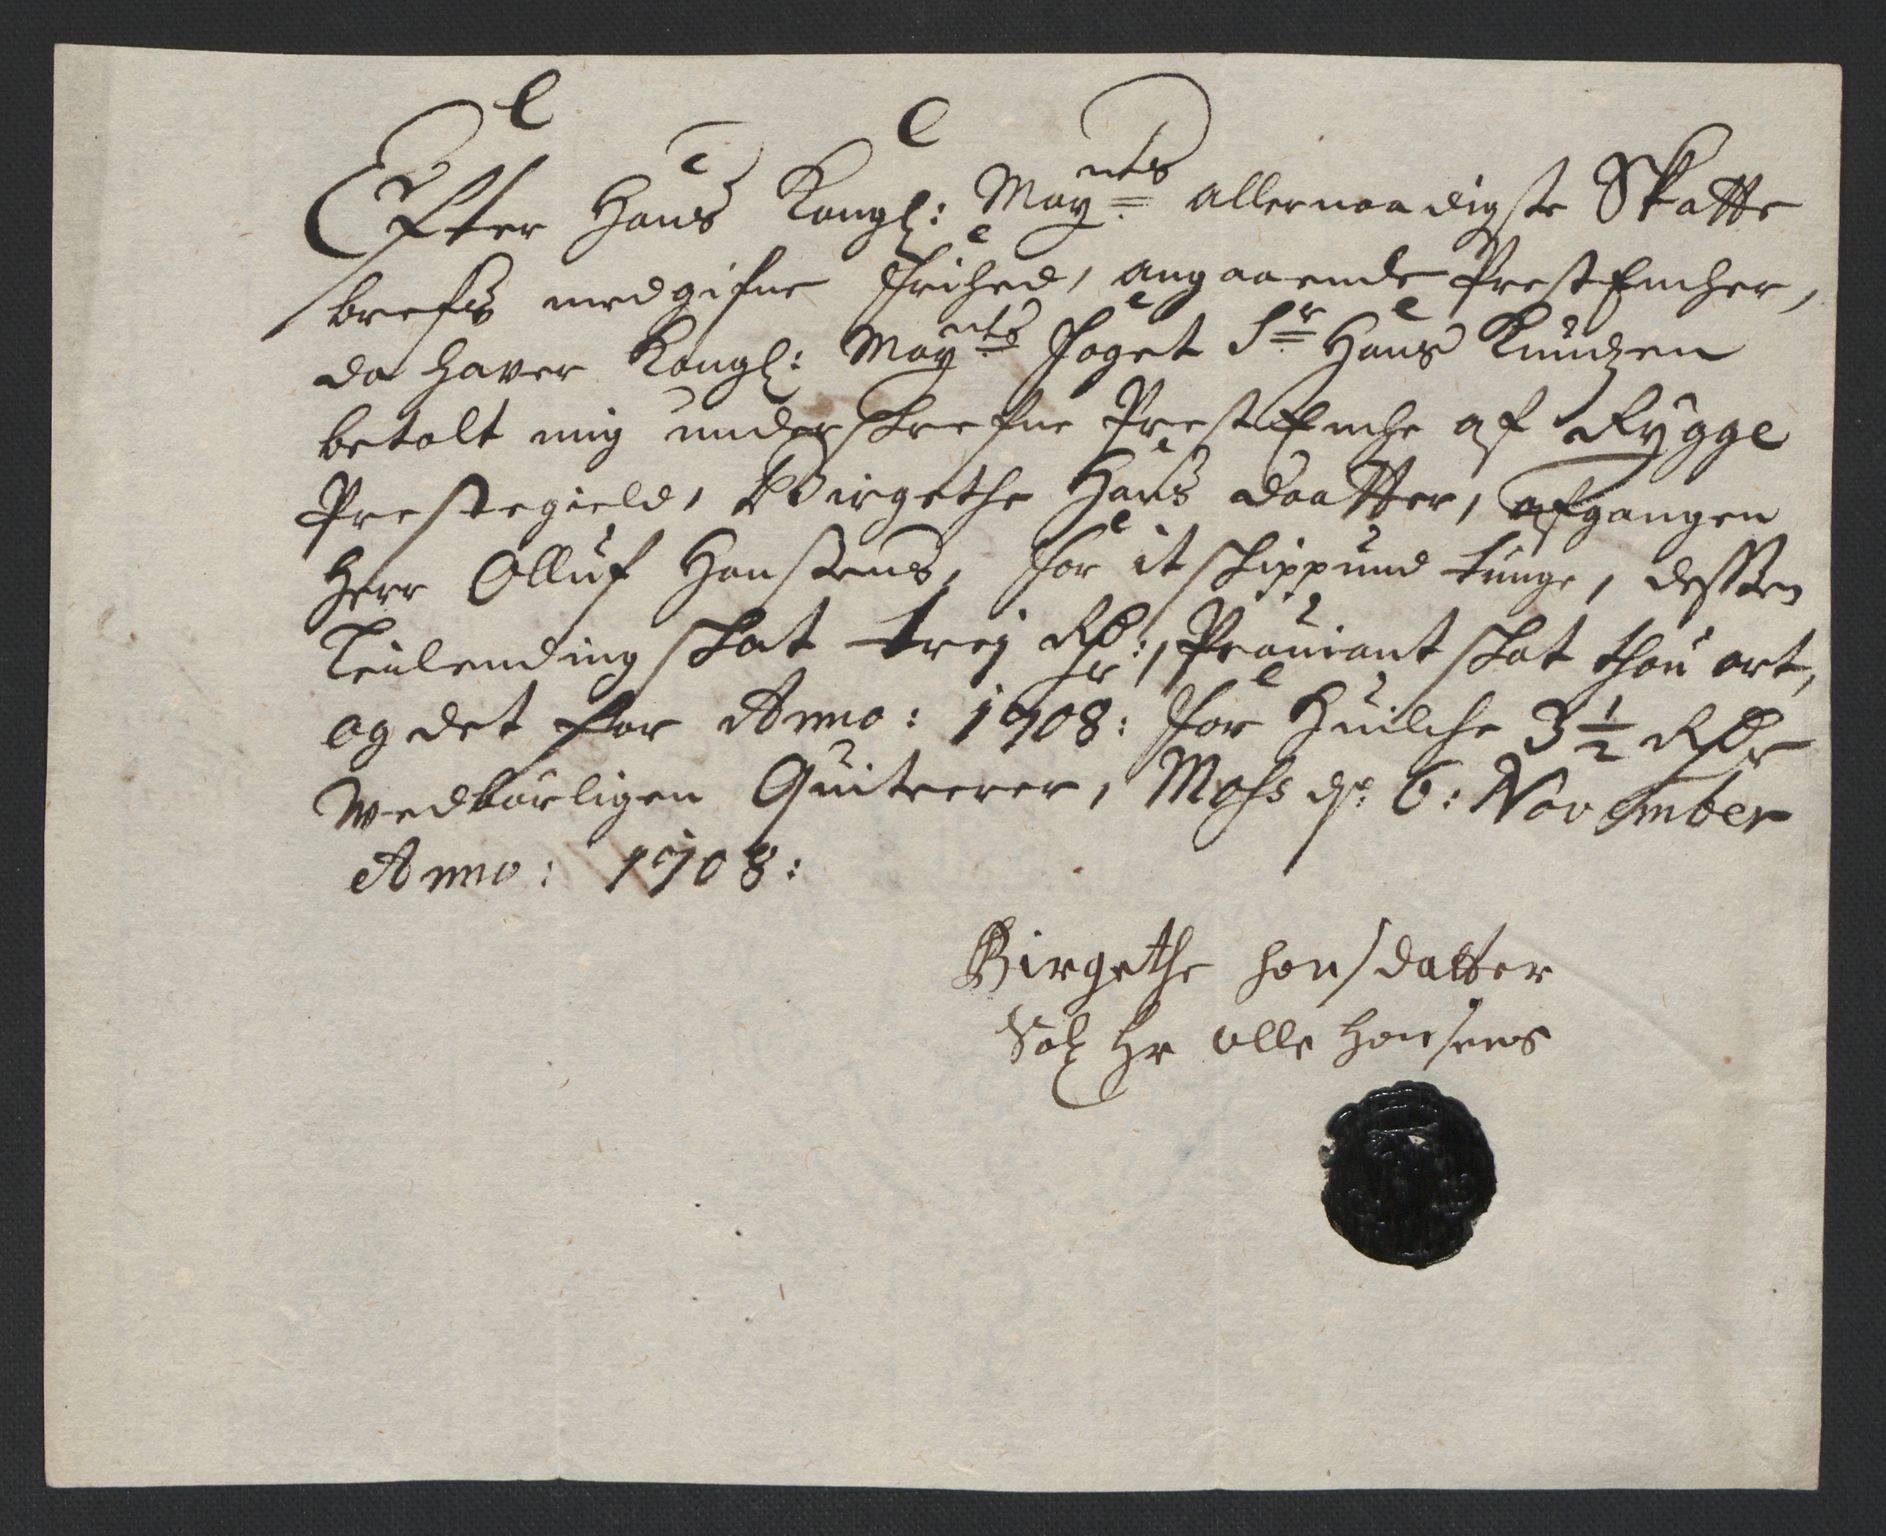 Efter Hans Kongl: May:nts allernaadigste Skatte
brefs medgifne Frihed, angaaende PrestEncher,
da haver Kongl: May:nts Foget Sr: Hans Knudzen
betalt mig underskrefne PrestEnche af Rygge
Prestegield, Birgethe Hans daatter, afgangen
Herr Olluf Hansens, for it skippund tunge, dessen
Leilending skat trej Rdr:, Prouiant skat thou ort,
og det for Anno: 1708: for huilche 3 1/2 Rdr
wedbørligen Quiterer, Moss d: 6: November
Anno: 1708:
Birgethe hansdatter
Sal Hr olle hansens